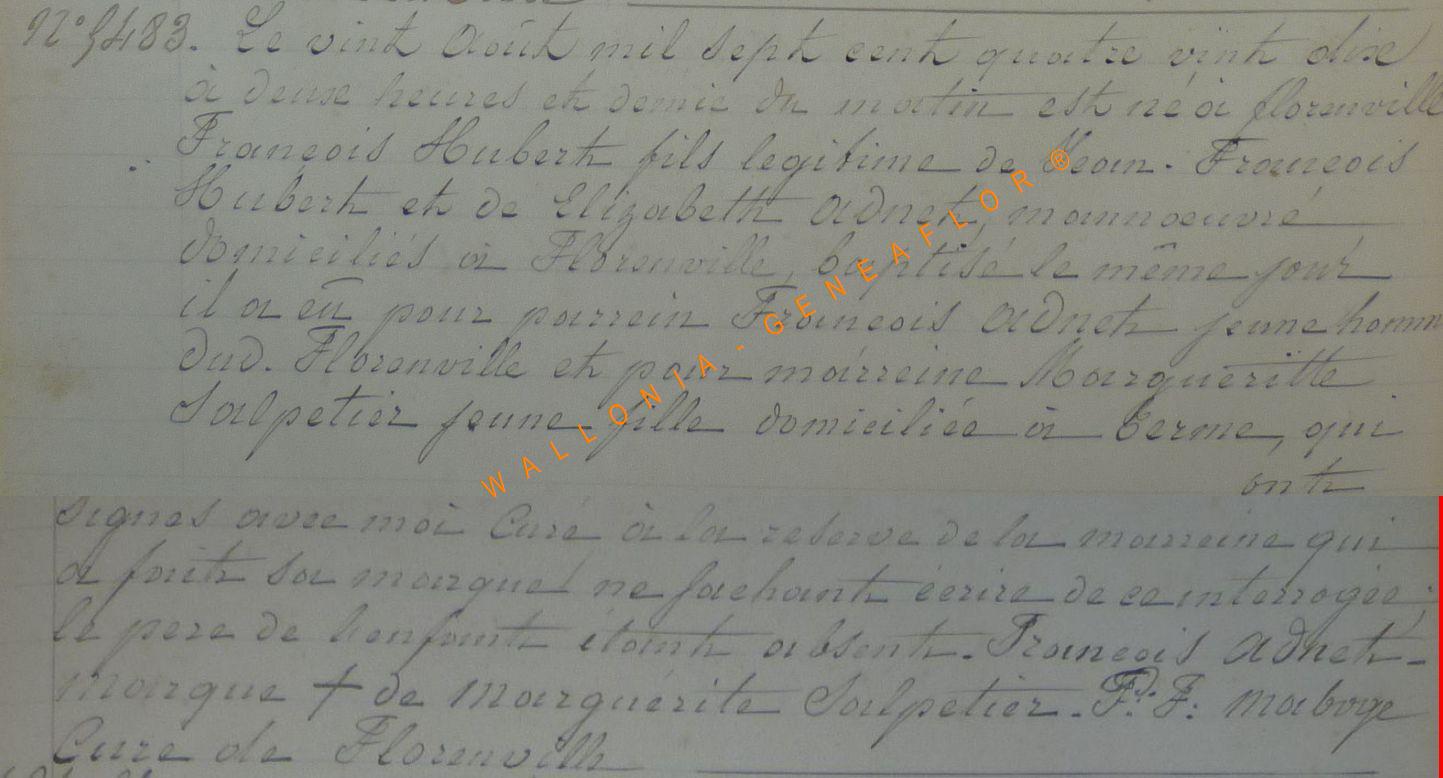 N° 5483. Le vint Août mil sept cent quatre vint dix
à deux heures et demie du matin est né à florenville
François Hubert fils legitime de Jean-François
Hubert et de Elizabeth Adnet, mannoeuvre
domiciliés à Florenville, baptisé le même jour
il a eû pour parrein François Adnet jeune homm
dud. Florenville et pour marreine Marguéritte
Salpetier jeune fille domiciliée à Terme, qui
ont
signés avec moi Curé à la reserve de la marreine qui
a fait sa marque ne sachant écrire de ce interrogée;
le pere de l'enfant étant absent. François Adnet-
marque + de Marguérite Salpetier. F. F: Maboge
Cure de Florenville
WALLONIA - GENEAFLOR ®